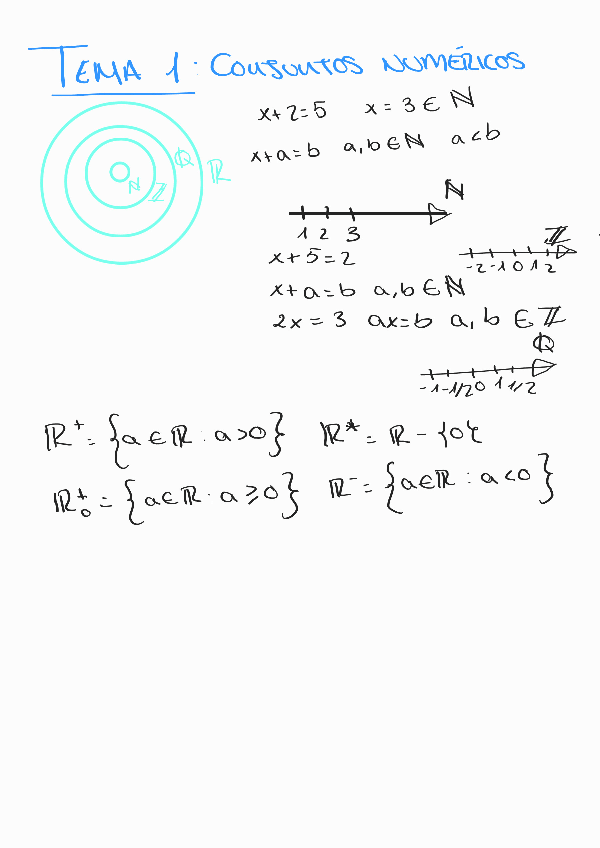 TEMA 1: CONJUNTOS NUMÉRICOS
x+2=5 x=3∈ℕ
x+a=b a,b∈ℕ a<b
ℕ ℤ ℚ ℝ
ℕ
1 2 3
x+5=2
ℤ
-2 -1 0 1 2
x+a=b a,b∈ℕ
2x=3 ax=b a,b∈ℤ
ℚ
-1 -1/2 0 1 1/2
ℝ⁺={a∈ℝ: a>0} ℝ*=ℝ-{0}
ℝ₀⁺={a∈ℝ· a⩾0} ℝ⁻={a∈ℝ: a<0}